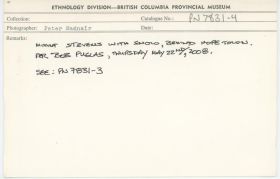 ETHNOLOGY DIVISION—BRITISH COLUMBIA PROVINCIAL MUSEUM
Collection: Catalogue No.: PN 7831-4
Photographer: Peter Macnair
Remarks:
MOUNT STEVENS WITH SNOW, BEHIND HOPETOWN.
PER BOB PUGLAS, THURSDAY MAY 22ND, 2008.
SEE: PN 7831-3